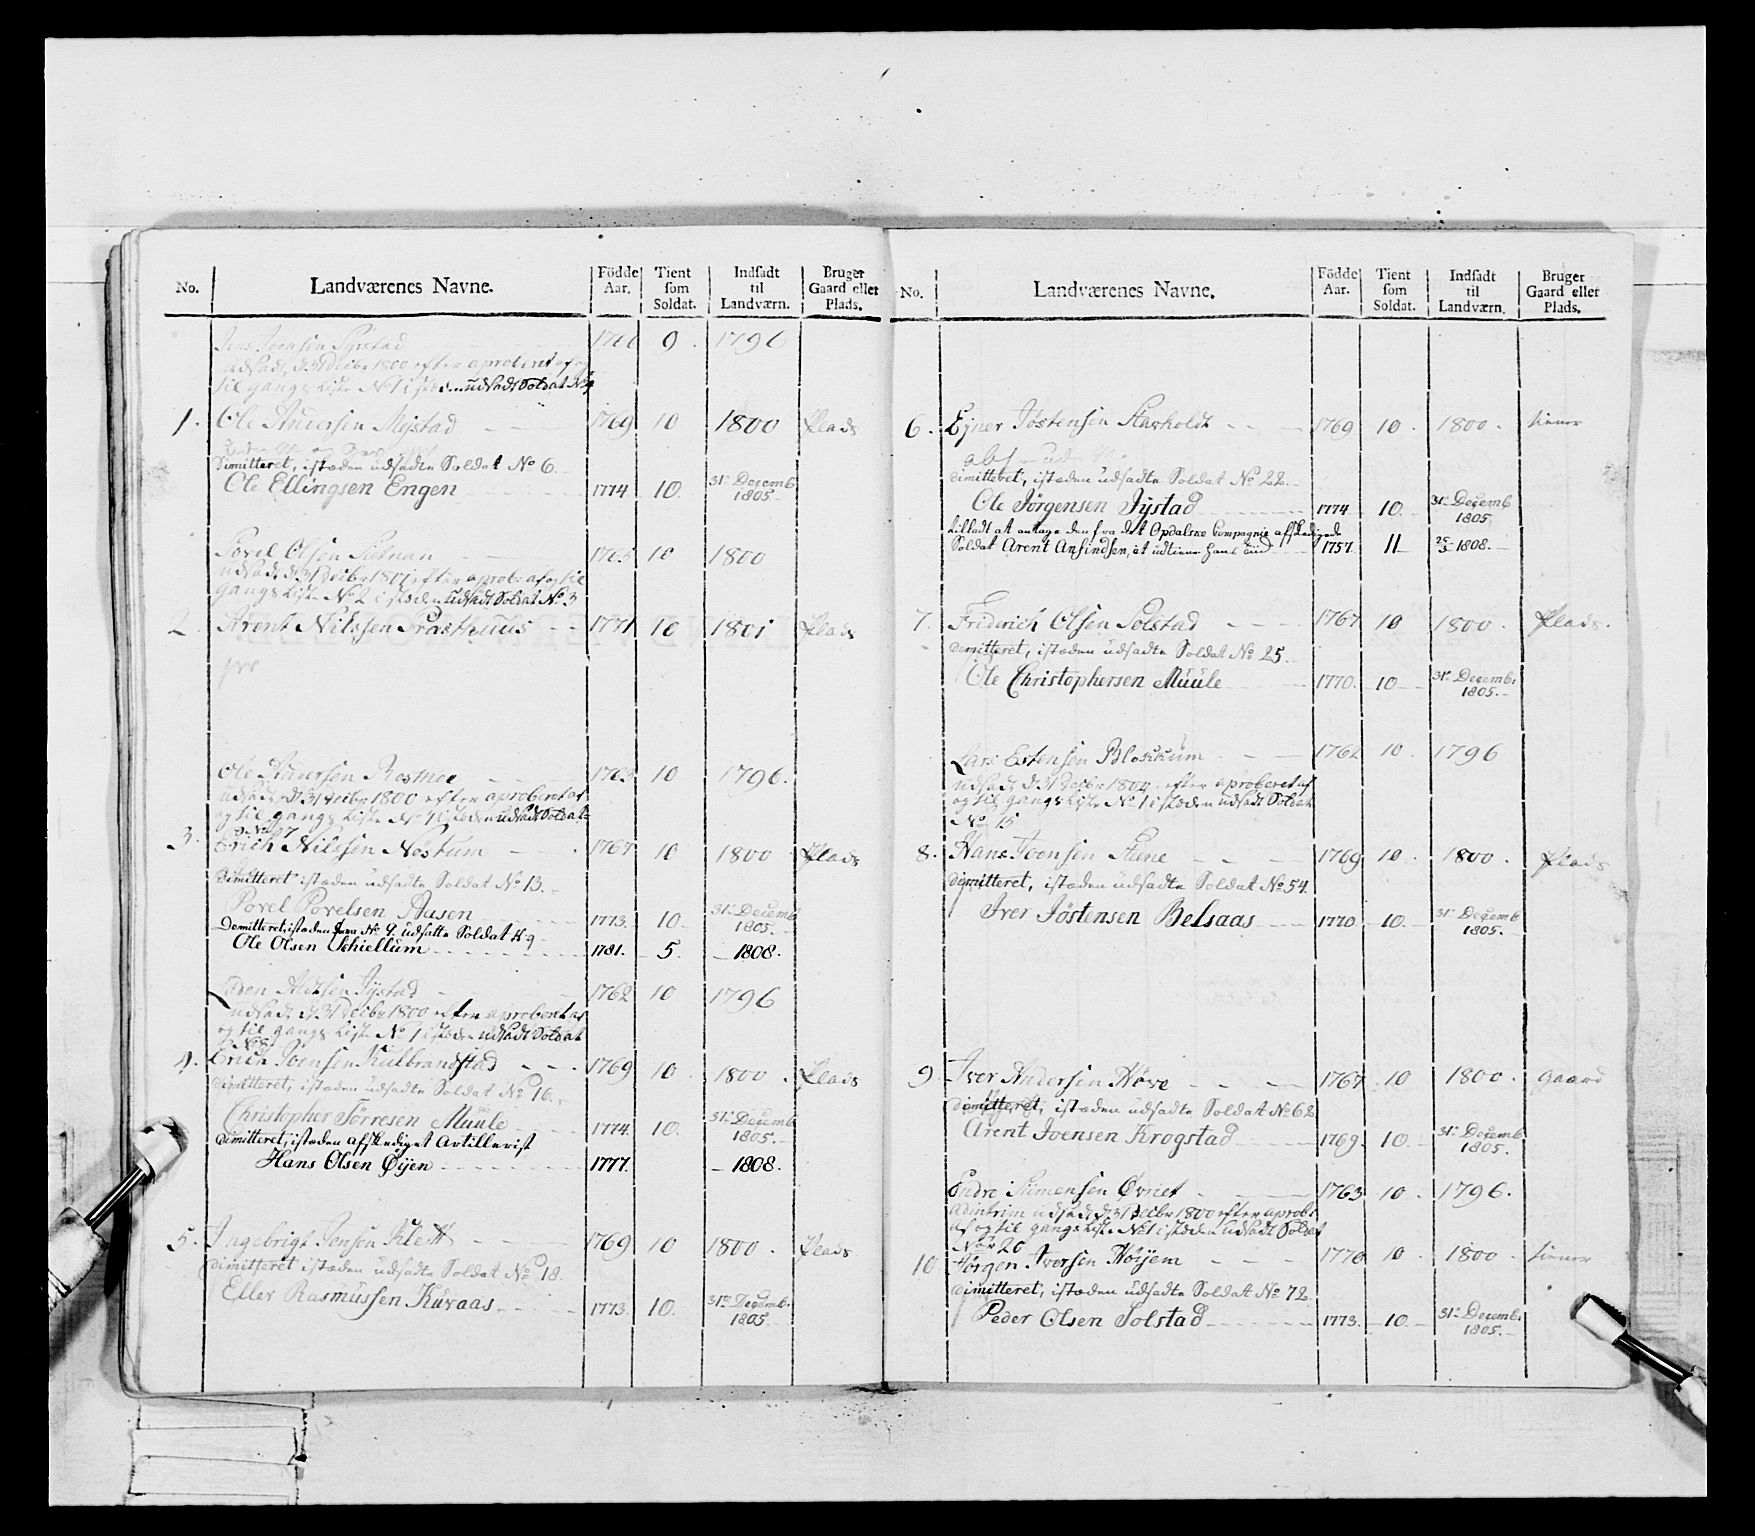 No. Landværenes Navne. Födde Aar. Tient som Soldat. Indsadt til Landværn. Bruger Gaard eller Plads.
9. 1796
udsadt d: 31 Decbr 1800 efter aproberet af og
til gangs Liste No 1 i stæden udsadt Soldat No 4
1. Ole Andersen Mystad 1769 10 1800 Plads
Dimitteret, istæden udsadte Soldat No 6.
Ole Ellingsen Engen 1774. 10. 31te Decemb 1805.
Povel Olsen 1765 10 1800
udsadt d 31 Decbr 1801 efter aprob: af og til
gangs Liste No 2 i stæden udsadt Soldat No 3
2. Arent Nilssen 1771 10 1801 Plads
Ole Andersen 1763 10 1796.
udsadt d 31 Decbr 1800 efter aproberet af
og til gangs Liste No 1 i stæden udsadt Soldat
No 97
3. Erich Nilssen Nostum 1767 10 1800 Plads
Dimitteret istæden udsadte Soldat No 13.
Povel Povelsen Aasen 1773. 10. 31te Decemb 1805.
Demitteret, istæden No 9. udsatte Soldat
Ole Olsen Schiellum 1781. 5. 1808.
1762 10 1796
udsadt d: 31 Decbr 1800 efter aproberet af
og til gangs Liste No 1 i stæden udsadt Soldat
4. Erich Joensen Kulbrandstad 1769 10 1800. Plads
Dimitteret, istæden udsadte Soldat No 16.
Christopher Törresen Muule 1774. 10. 31te Decemb 1805.
Dimitteret, istæden afskediget Artillerist
Hans Olsen Øyen 1777. 1808.
5. Ingebrigt Jonsen Klett 1769 10 1800. Plads
Dimitteret istæden udsadte Soldat No 18.
Eller Rasmussen Kuvaas 1773. 10. 31te Decemb. 1805.
No. Landværenes Navne. Födde Aar. Tient som Soldat. Indsadt til Landværn. Bruger Gaard eller Plads.
6. Ejner Jöstensen 1769 10. 1800. tiener
Dimitteret, istæden udsadte Soldat No 22.
Ole Jörgensen Tystad 1774 10. 31te Decemb 1805.
tilladt at antage den fra det Opdalske Compagnie afskedigede
Soldat Arent Anfindsen, at udtiene hans tiid 1757. 11 25/3 1808.
7. Friderich Olsen Solstad 1767 10 1800. Plads.
Demitteret, istæden udsadte Soldat No 25.
Ole Christophersen Muule 1770. 10 31te Decemb: 1805.
Lars Estensen 1762 10. 1796
udsadt d 31 Decbr 1800 efter aproberet af
og til gangs Liste No 1 i stæden udsadt Soldat
No 15
8. Hans Joensen 1769 10. 1800. Plads
Dimitteret, istæden udsadte Soldat No 54.
Iver Jöstensen Belsaas 1770 10. 31te Decemb 1805.
9. Iver Andersen Hove 1767 10 1800. Gaard
Dimitteret, istæden udsadte Soldat No 62
Arent Joensen Krogstad 1769. 10. 31te Decemb 1805.
Endre Simensen 1763 10. 1796.
udsadt d. 31 Decbr 1800 efter aprobr
af og til gangs Liste No 1 i stæden udsadt Soldat
No 20
10 Jörgen Iversen Höyem 1770 10. 1800. tiener
Dimitteret, istæden udsadte Soldat No 72.
Peder Olsen Solstad 1773. 10. 31te Decemb. 1805.